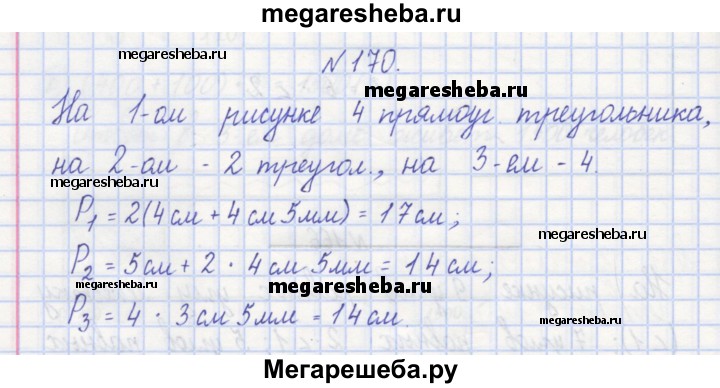 megaresheba.ru
megaresheba.ru
N 170.
megaresheba.ru
На 1-ом рисунке 4 прямоуг треугольника,
на 2-ом - 2 треугол., на 3-ем - 4.
megaresheba.ru
P₁ = 2(4 см + 4 см 5 мм) = 17 см;
megaresheba.ru
P₂ = 5 см + 2 · 4 см 5 мм = 14 см;
megaresheba.ru
megaresheba.ru
P₃ = 4 · 3 см 5 мм = 14 см.
Мегарешеба.ру